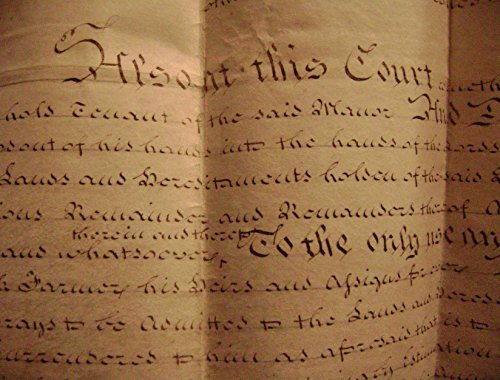 Also at this Court
hold Tenant of the said Manor And
out of his hands into the hands of the Lords
Lands and Hereditaments holden of the said
Remainder and Remainders thereof
therein and thereto
and whatsoever, To the only use
Farmer, his Heirs and Assigns forever
prays to be admitted to the Lands and
surrendered to him as aforesaid